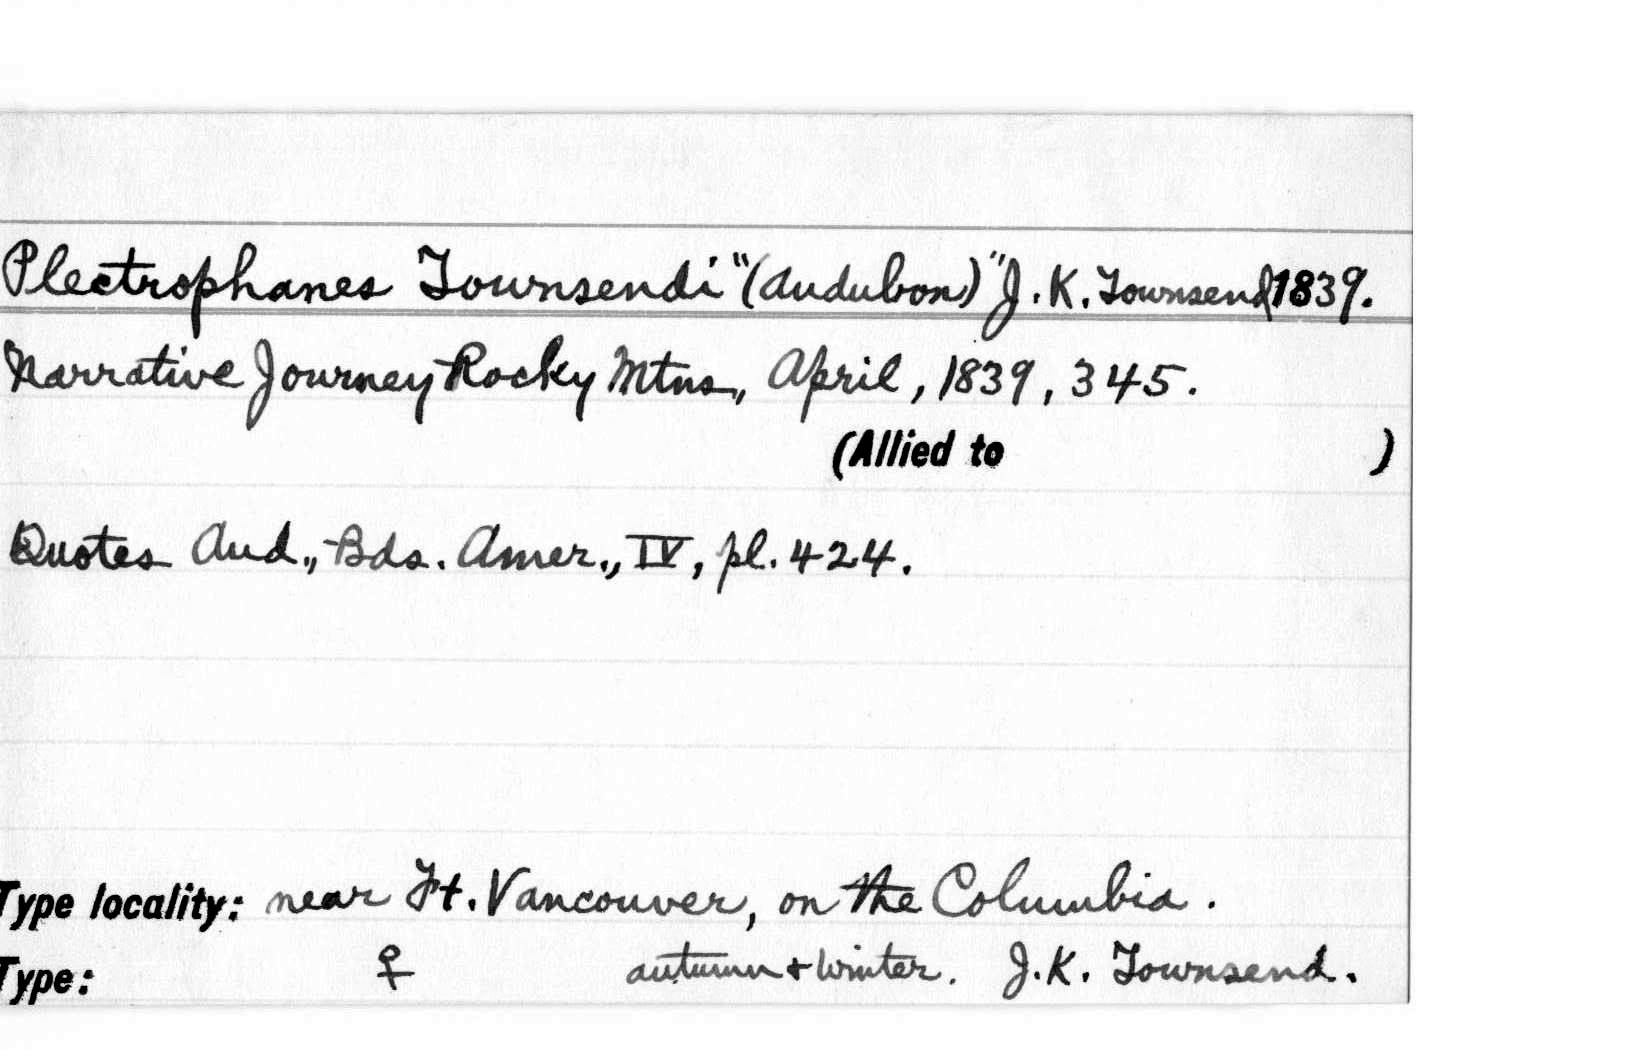 Plectrophanes Townsendi "(Audubon)" J. K. Townsend 1839.
Narrative Journey Rocky Mtns., April, 1839, 345.
(Allied to )
Quotes Aud., Bds. Amer., IV, pl. 424.
Type locality: near Ft. Vancouver, on the Columbia.
Type: ♀ autumn + winter. J. K. Townsend.